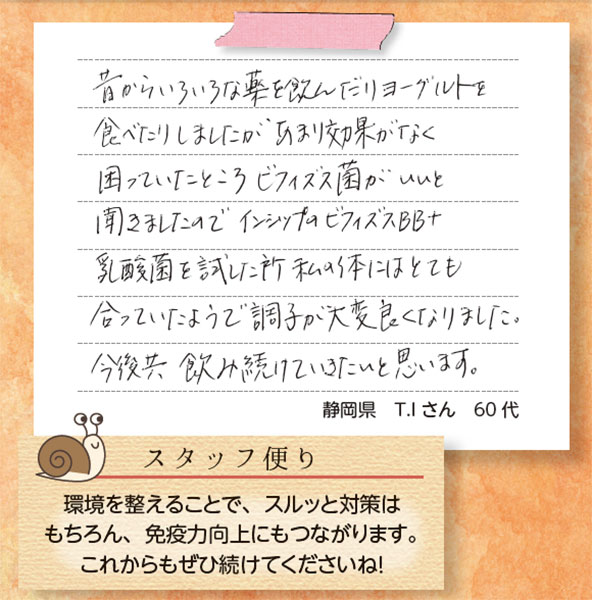 昔からいろいろな薬を飲んだりヨーグルトを
食べたりしましたが あまり効果がなく
困っていたところ ビフィズス菌が いいと
聞きましたので インシップのビフィズスBB+
乳酸菌を試した所 私の体にはとても
合っていたようで調子が大変良くなりました。
今後共 飲み続けていきたいと思います。
静岡県 T.Iさん 60代
スタッフ便り
環境を整えることで、スルッと対策は
もちろん、免疫力向上にもつながります。
これからもぜひ続けてくださいね!